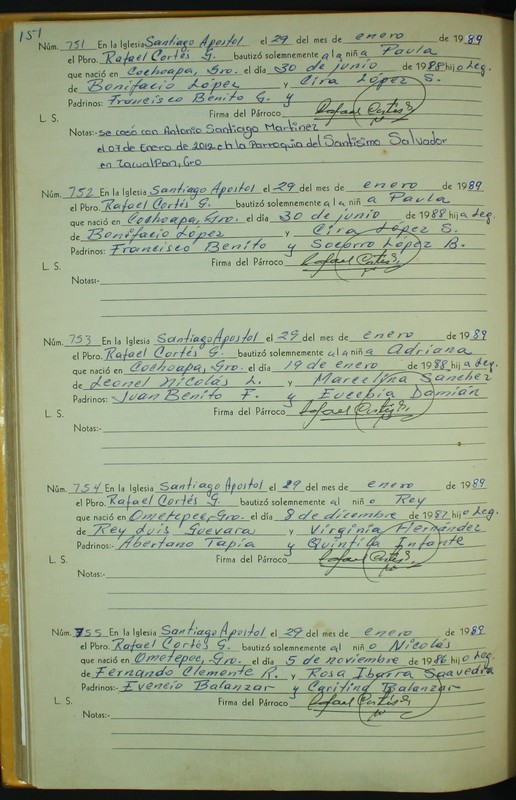 151
Núm. 751 En la Iglesia Santiago Apostol el 29 del mes de enero de 1989
el Pbro. Rafael Cortés G. bautizó solemnemente a la niña Paula
que nació en Cochoapa, Gro. el día 30 de junio de 1988 hijo Leg.
de Bonifacio López y Cira López S.
Padrinos: Francisco Benito G. y
L. S. Firma del Párroco Rafael Cortés G.
Notas:- se casó con Antonio Santiago Martinez
el 07 de Enero de 2012 en la Parroquia del Santisimo Salvador
en Gro
Núm. 752 En la Iglesia Santiago Apostol el 29 del mes de enero de 1989
el Pbro. Rafael Cortés G. bautizó solemnemente a la niña Paula
que nació en Cochoapa, Gro. el día 30 de junio de 1988 hija Leg.
de Bonifacio López y Cira López S.
Padrinos: Francisco Benito y Socorro López B.
L. S. Firma del Párroco Rafael Cortés G.
Notas:-
Núm. 753 En la Iglesia Santiago Apostol el 29 del mes de enero de 1989
el Pbro. Rafael Cortés G. bautizó solemnemente a la niña Adriana
que nació en Cochoapa, Gro. el día 19 de enero de 1988 hija Leg.
de Leonel Nicolás L. y Marcelyna Sánchez
Padrinos: Juan Benito F. y Eucebia Damián
L. S. Firma del Párroco Rafael Cortés G.
Notas:-
Núm. 754 En la Iglesia Santiago Apostol el 29 del mes de enero de 1989
el Pbro. Rafael Cortés G. bautizó solemnemente al niño Rey
que nació en Ometepec, Gro. el día 8 de diciembre de 1987 hijo Leg.
de Rey Luis Guevara y Virginia Hernández
Padrinos:- Abertano Tapia y Quintila Infante
L. S. Firma del Párroco Rafael Cortés G.
Notas:-
Núm. 755 En la Iglesia Santiago Apostol el 29 del mes de enero de 1989
el Pbro. Rafael Cortés G. bautizó solemnemente al niño Nicolás
que nació en Ometepec, Gro. el día 5 de noviembre de 1986 hijo Leg.
de Fernando Clemente R. y Rosa Ibarra Saavedra
Padrinos: Evencio Balanzar y Caritina Balanzar
L. S. Firma del Párroco Rafael Cortés G.
Notas:-